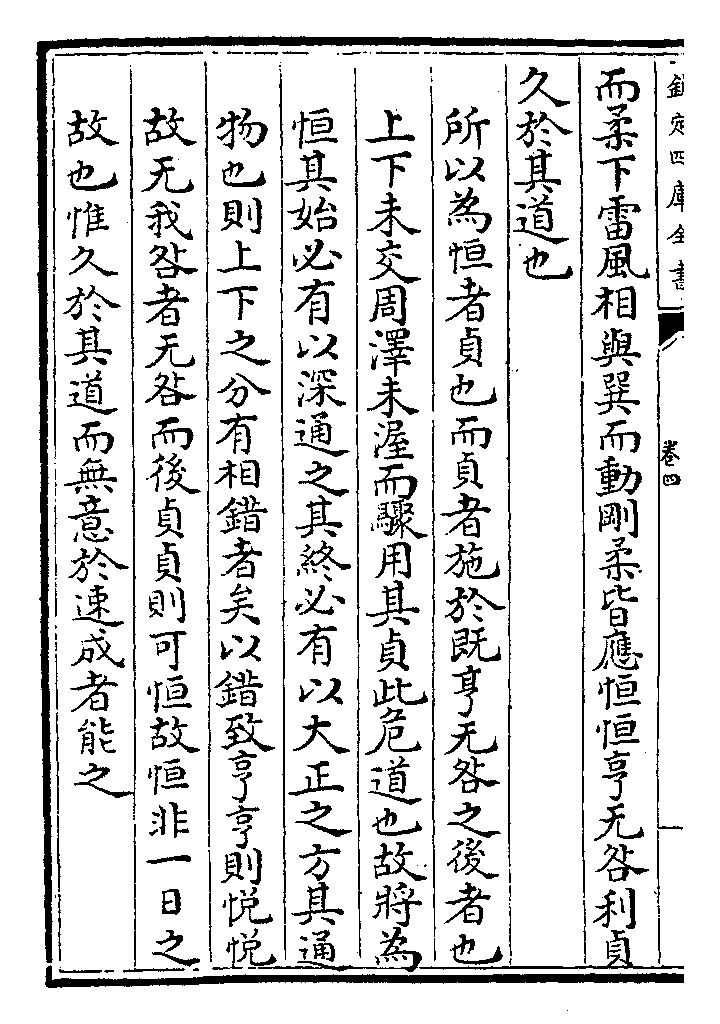 欽定四庫全書
卷四
而柔下雷風相與巽而動剛柔皆應恒恒亨无咎利貞
久於其道也
所以為恒者貞也而貞者施於既亨无咎之後者也
上下未交周澤未渥而驟用其貞此危道也故將為
恒其始必有以深通之其終必有以大正之方其通
物也則上下之分有相錯者矣以錯致亨亨則悅悅
故无我咎者无咎而後貞貞則可恒故恒非一日之
故也惟久於其道而無意於速成者能之